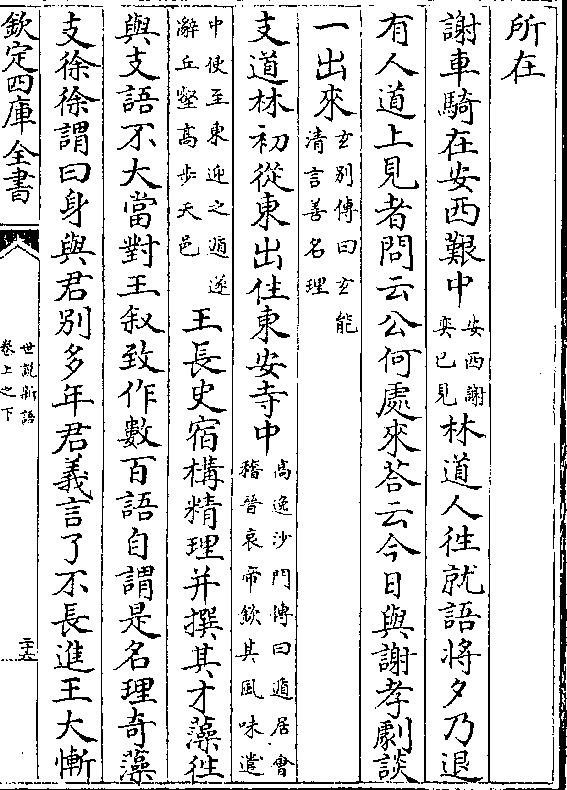 所在
謝車騎在安西艱中安西謝奕已見林道人徃就語將夕乃退
有人道上見者問云公何處來荅云今日與謝孝劇談
一出來玄別傳曰玄能清言善名理
支道林初從東出住東安寺中高逸沙門傳曰遁居會稽晉哀帝欽其風味遣
中使至東迎之遁遂辭丘壑高步天邑王長史宿構精理并撰其才藻徃
與支語不大當對王叙致作數百語自謂是名理奇藻
支徐徐謂曰身與君別多年君義言了不長進王大慚
欽定四庫全書
世說新語
卷上之下